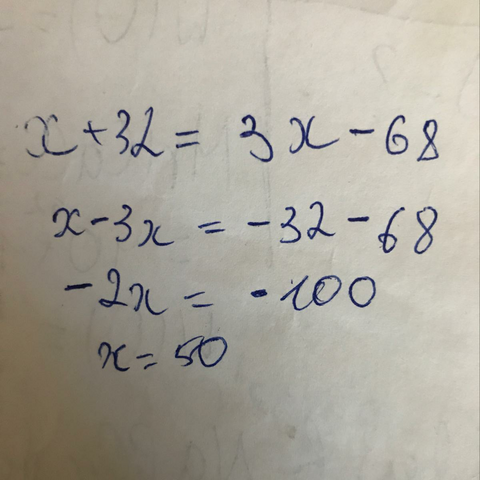 x+32 = 3x - 68
x - 3x = -32 - 68
-2x = -100
x = 50